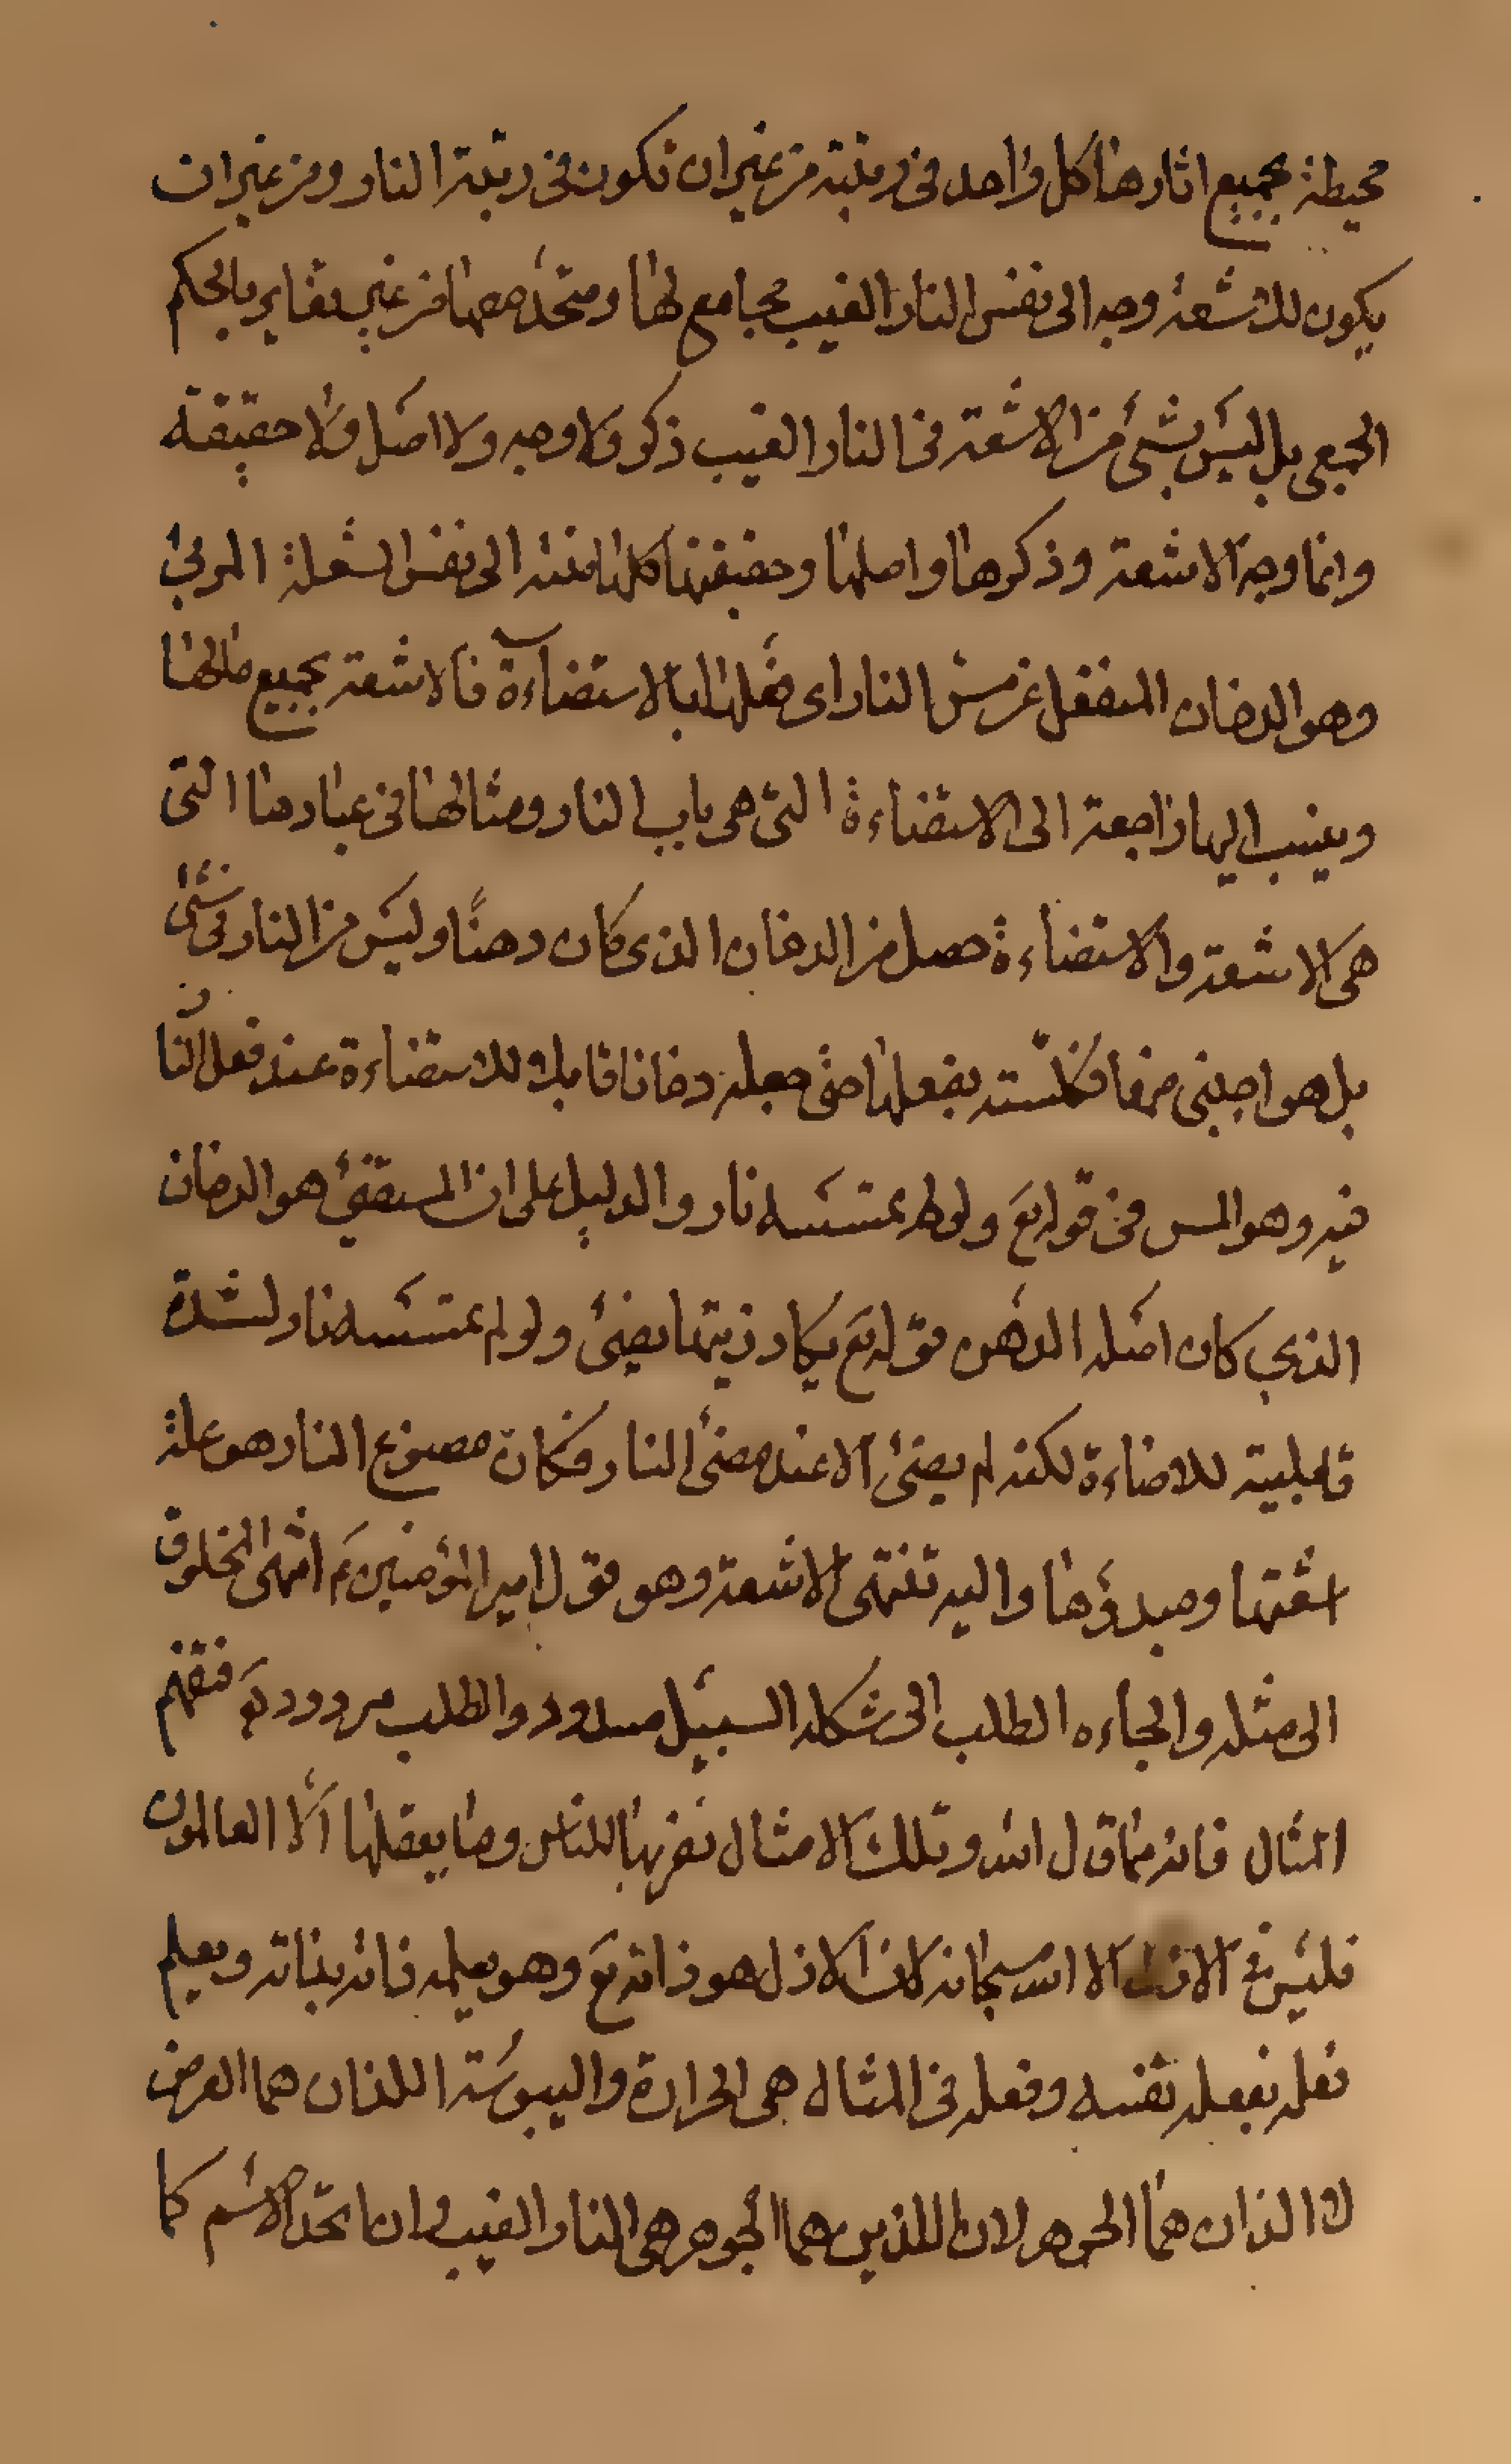 محيطة بجميع اثارها كل واحد فى رتبته من غير ان تكون فى رتبة النار ومن غير ان
يكون للاشعة وجه الى نفس النار الغيب مجامع لها ومتحد معها من غير تغاير بالحكم
الجمعى بل ليس بشئ من الاشعة فى النار الغيب ذكر ولا وجه ولا اصل ولا حقيقة
وانما وجه الاشعة وذكرها واصلها وحقيقتها كلها منته الى نفس الشعلة المرئى
وهو الدخان المنفعل عن مس النار اى فعلها بالاستضاءة فالاشعة بجميع مالها
وينسب اليها راجعة الى الاستضاءة التى هى باب النار ومثالها فى عبادها التى
هى الاشعة والاستضاءة حصل من الدخان الذى كان دهنًا وليس من النار فى شئ
بل هو اجنبى منها فكلسته بفعلها حتى جعله دخانا قابلا للاستضاءة عند فعل النار
فيه وهو المس فى قوله تع ولو لم تمسسه نار والدليل على ان المستضئ هو الدخان
الذى كان اصله الدهن قوله تع يكاد زيتها يضئ ولو لم تمسسه نار لشدة
قابلية للاضاءة لكنه لم يضئ الا عند مضئ النار فكان مصنوع النار هو علة
اشعتها ومبدؤها واليه تنتهى الاشعة وهو قول امير المؤمنين ع انتهى المخلوق
الى مثله والجاءه الطلب الى شكله السبيل مسدود والطلب مردود تع فتفهم
المثال فانه مما قال الله وتلك الامثال نضربها للناس وما يعقلها الا العالمون
فليس فى الازل الا الله سبحانه لان الازل هو ذاته تع وهو يعلم ذاته بذاته ويعلم
فعله بفعله نفسه وفعله فى المثال هى الحرارة واليبوسة اللذان هما العرض
لا الذان هما الجوهر لان اللذين هما الجوهر هى النار الغيب وان اتحد الاسم كما